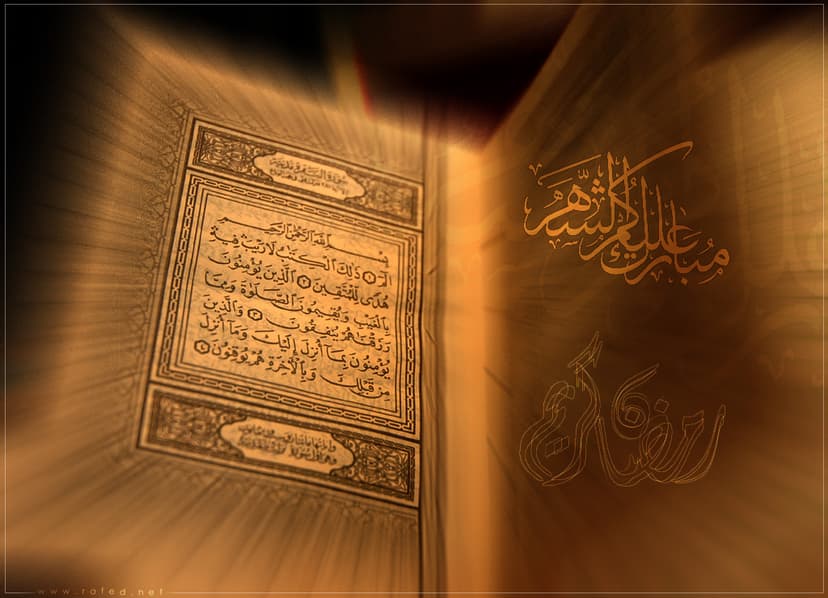 بِسْمِ اللَّهِ الرَّحْمَٰنِ الرَّحِيمِ
الٓمٓ ١ ذَٰلِكَ الْكِتَٰبُ لَا رَيْبَ فِيهِ
هُدًى لِلْمُتَّقِينَ ٢ الَّذِينَ يُؤْمِنُونَ
بِالْغَيْبِ وَيُقِيمُونَ الصَّلَوٰةَ وَمِمَّا
رَزَقْنَٰهُمْ يُنْفِقُونَ ٣ وَالَّذِينَ
يُؤْمِنُونَ بِمَا أُنْزِلَ إِلَيْكَ وَمَا أُنْزِلَ
مِنْ قَبْلِكَ وَبِالْآخِرَةِ هُمْ يُوقِنُونَ ٤
مُبارك عليكم الشهر
رمضان كريم
www.rafed.net